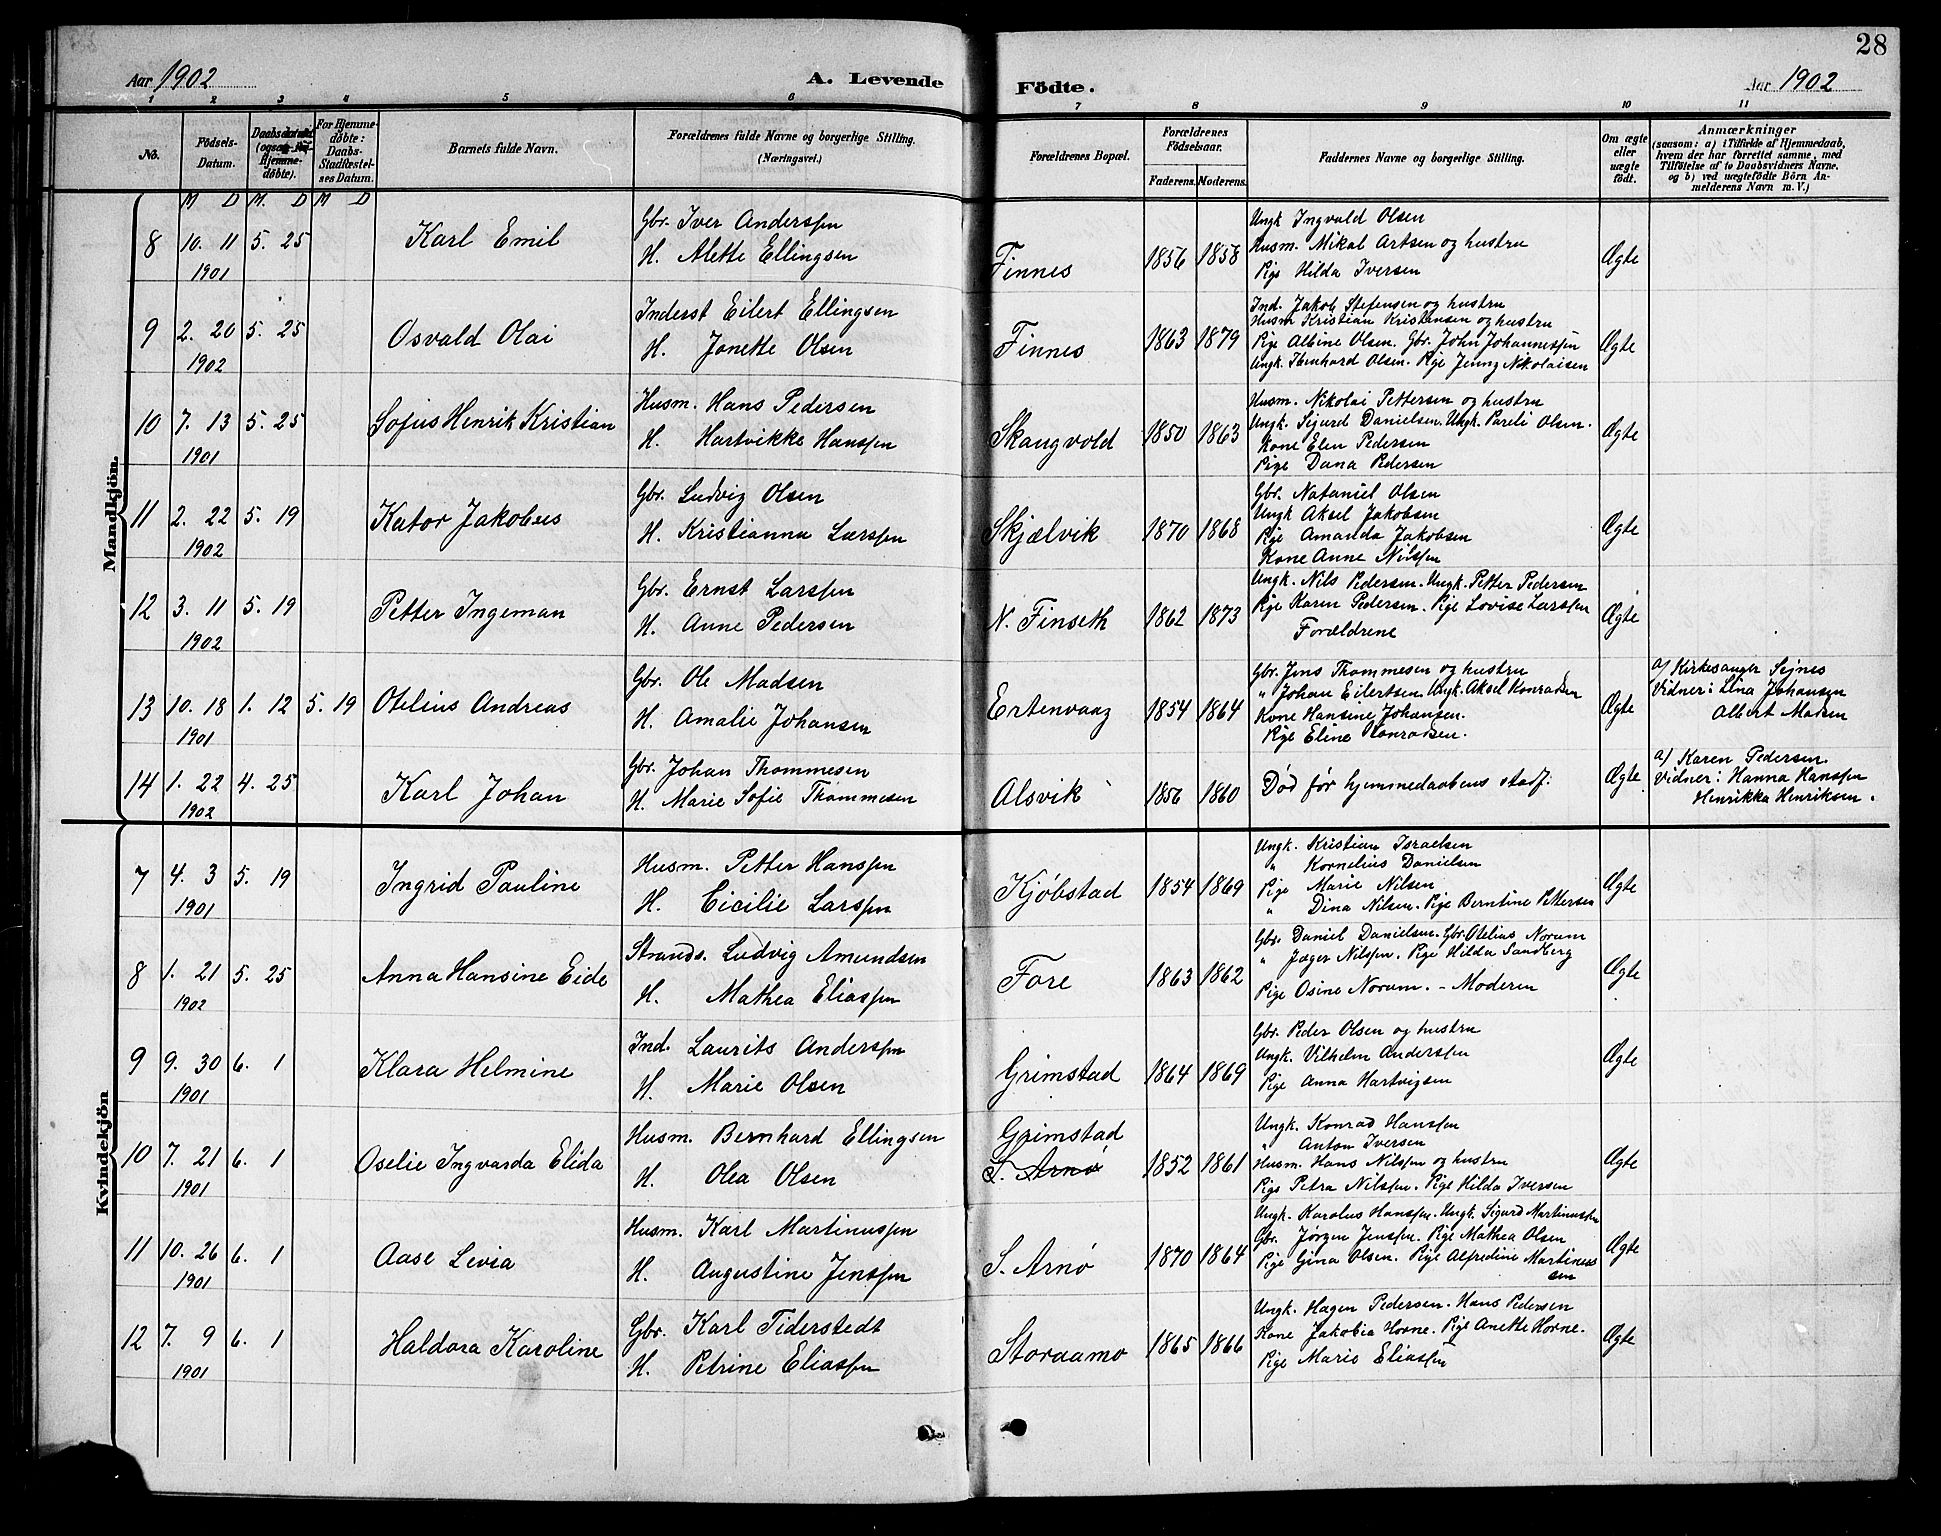 28
Aar 1902 A. Levende Födte. Aar 1902
1 2 3 4 5 6 7 8 9 10 11
No.
Födsels-Datum.
For Hjemme-döbte: Daabs-Stadfæstelses Datum.
Barnets fulde Navn.
Forældrenes fulde Navne og borgerlige Stilling.
(Næringsvei.)
Forældrenes Bopæl.
Forældrenes Födselsaar.
Faderens. Moderens.
Faddernes Navne og borgerlige Stilling.
Om ægte eller uægte födt.
Anmærkninger
(saasom: a) i Tilfælde af Hjemmedaab,
hvem der har forrettet samme, med
Tilföielse af to Daabsvidners Navne,
og b) ved uægtefödte Börn An-
melderens Navn m. V.)
M D M. D M D
Mandkjön.
8 10. 11 1901 5. 25 Karl Emil
Gbr. Iver Anderssen
H. Alette Ellingsen
Finnes 1856 1858
Ungk Ingvald Olsen
Husm. Mikal Artsen og hustru
Pige Hilda Iversen
Ægte
9 2. 20 1902 5. 25 Osvald Olai
Inderst Eilert Ellingsen
H. Jonette Olsen
Finnes 1863 1879
Ind. Jakob Stefensen og hustru
Husm Kristian Kristensen og hustru
Pige Albine Olsen. Gbr. John Johannessen
Ungk. Olsen. Pige Jenny Nikolaisen
Ægte
10 7. 13 1901 5. 25 Sofus Henrik Kristian
Husm. Hans Pedersen
H. Hartvikke Hanssen
Skaugvold 1850 1863
Husm. Nikolai Pettersen og hustru
Ungk. Sigurd Danielsen. Ungk. Pareli Olsen.
Kone Elen Pedersen
Pige Dana Pedersen
Ægte
11 2. 22 1902 5. 19 Kator Jakobus
Gbr. Ludvig Olsen
H. Kristianna Larssen
Skjælvik 1870 1868
Gbr. Nataniel Olsen
Ungk Aksel Jakobsen
Pige Amanda Jakobsen
Kone Anne Nilssen
Ægte
12 3. 11 1902 5. 19 Petter Ingeman
Gbr. Ernst Larssen
H. Anne Pedersen
N. Finseth 1862 1873
Ungk. Nils Pedersen. Ungk. Petter Pedersen
Pige Karen Pedersen. Pige Lovise Larssen
Forældrene
Ægte
13 10. 18 1901 1. 12 5. 19 Otelius Andreas
Gbr. Ole Madsen
H. Amalie Johansen
Ertenvaag 1854 1864
Gbr. Jens Thommesen og hustru
" Johan Eilertsen. Ungk. Aksel Konradsen
Kone Hansine Johansen.
Pige Eline Konradsen.
Ægte
a/ Kirkesanger Sejnes
Vidner: Lina Johansen
Albert Madsen
14 1. 22 1902 4. 25 Karl Johan
Gbr. Johan Thommesen
H. Marie Sofie Thommesen
Alsvik 1856 1860
Død før hjemmedaabens stadf:
Ægte
a/ Karen Pedersen.
Vidner: Hanna Hanssen
Henrikka Henriksen.
Kvindekjön
7 4. 3 1901 5. 19 Ingrid Pauline
Husm. Petter Hanssen
H. Cicilie Larssen
Kjøbstad 1854 1869
Ungk. Kristian Israelsen
" Kornelius Danielsen
Pige Marie Nilsen
" Dina Nilsen. Pige Berntine Pettersen
Ægte
8 1. 21 1902 5. 25 Anna Hansine Eide
Strands. Ludvig Amundsen
H. Mathea Eliassen
Fore 1863 1862
Gbr. Daniel Danielsen. Gbr. Otelius Norum
" Jæger Nilssen. Pige Hilda Sandberg
Pige Osine Norum. - Moderen
Ægte
9 9. 30 1901 6. 1 Klara Helmine
Ind. Laurits Anderssen
H. Marie Olsen
Grimstad 1864 1869
Gbr. Peder Olsen og hustru
Ungk. Vilhelm Anderssen
Pige Anna Hartvigsen
Ægte
10 7. 21 1901 6. 1 Oselie Ingvarda Elida
Husm. Bernhard Ellingsen
H. Olea Olsen
Grimstad
S. Arnø 1852 1861
Ungk. Konrad Hanssen
" Anton Iversen
Husm. Hans Nilssen og hustru
Pige Petra Nilssen. Pige Hilda Iversen
Ægte
11 10. 26 1901 6. 1 Aase Levia
Husm. Karl Martinussen
H. Augustine Jenssen
S. Arnø 1870 1864
Ungk. Karolus Hanssen. Ungk. Sigurd Martinussen
Gbr. Jørgen Jenssen. Pige Mathea Olsen
Pige Gina Olsen. Pige Alfredine Martinus
sen
Ægte
12 7. 9 1901 6. 1 Haldora Karoline
Gbr. Karl Tiderstedt
H. Petrine Eliassen
Storaamo 1865 1866
Ungk. Hagen Pedersen. Hans Pedersen
Kone Jakobia Horne. Pige Anette Horne.
Pige Marie Eliassen
Ægte